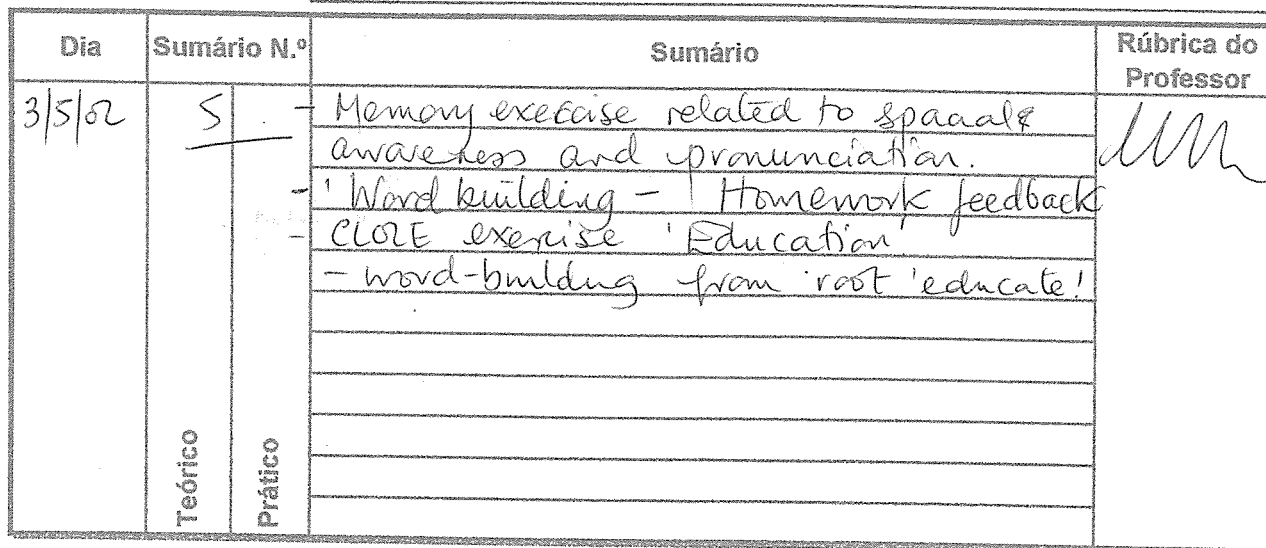 Dia Sumário N.º Sumário Rúbrica do Professor
3/5/02 5 - Memory exercise related to
awareness and pronunciation.
- 'Word building - ' Homework feedback
- CLOZE exercise 'Education'
- word-building from root 'educate'
Teórico
Prático